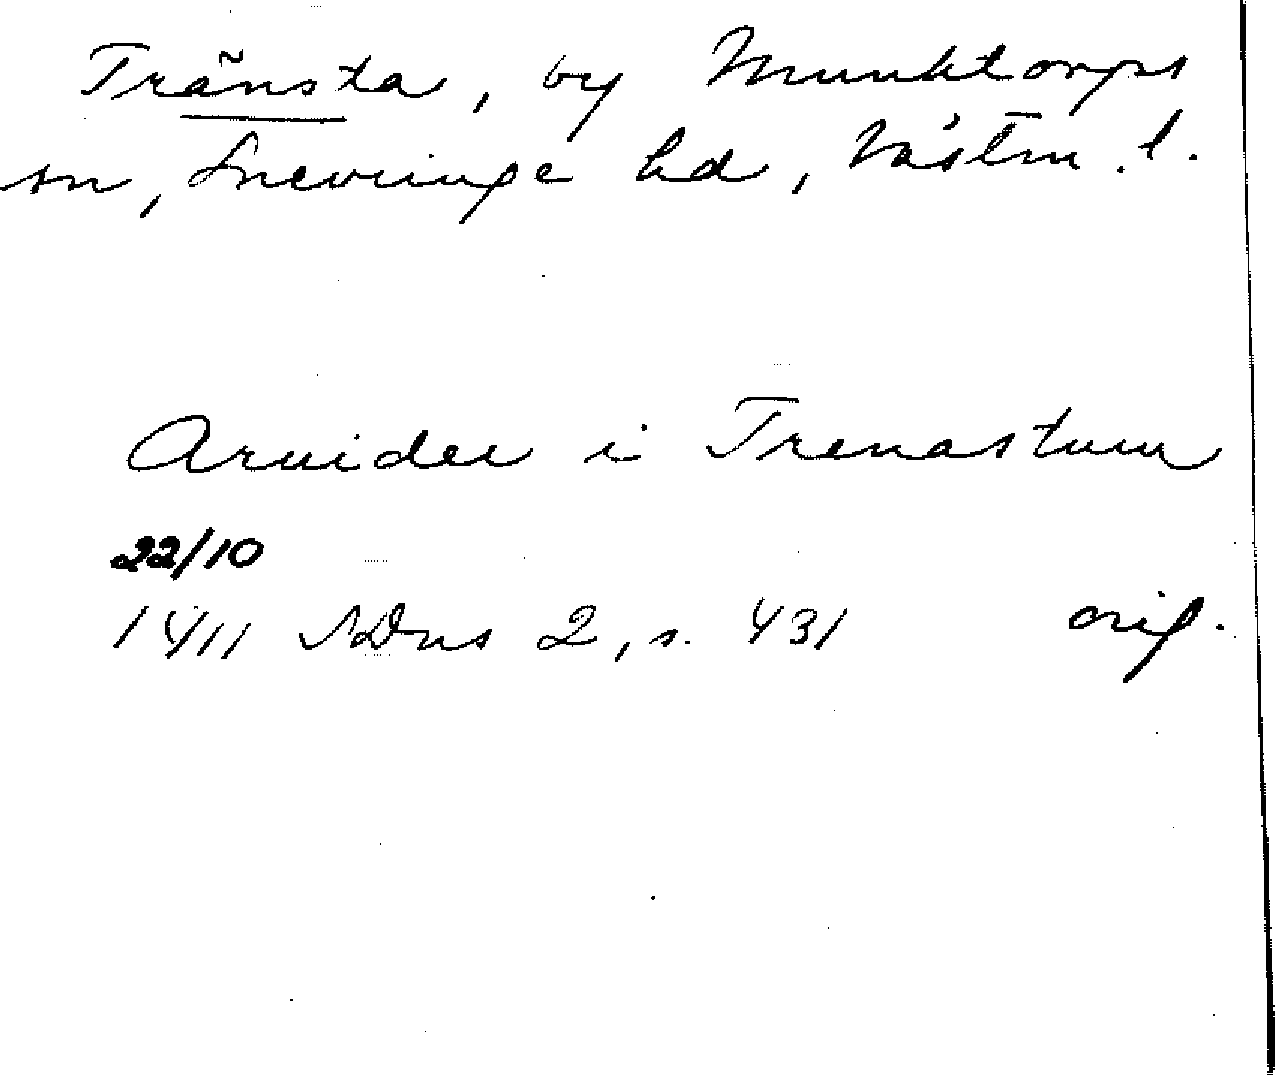 Tränsta, by Munktorps
sn, Snevringe hd, Västm. l.
Aruider i Trenastum
22/10
1411 SDns 2, s. 431 orig.